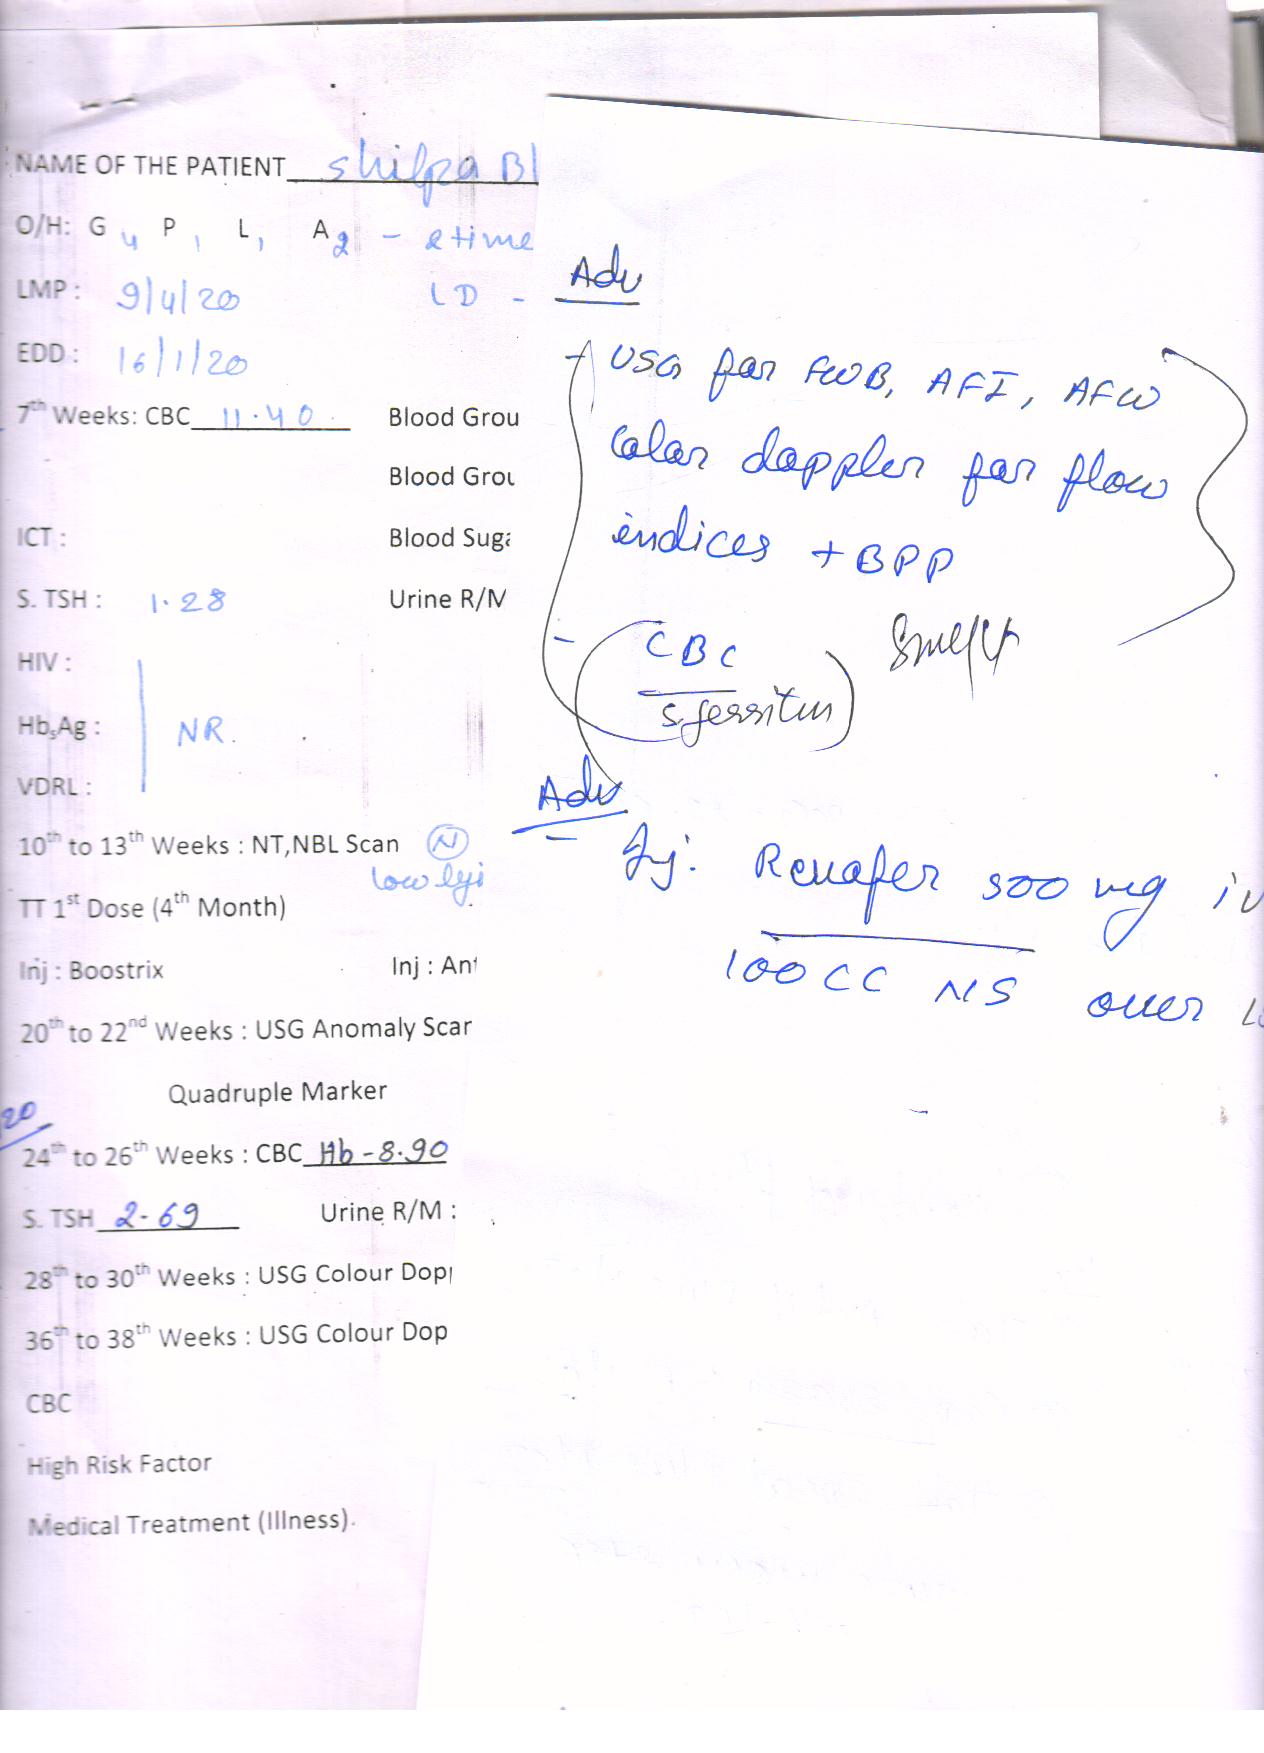 NAME OF THE PATIENT Shilpa Bl
O/H: G4 P1 L1 A2 - 2 time
LMP : 9/4/20 LD -
EDD : 16/1/20
7th Weeks: CBC 11.40 Blood Grou
Blood Grou
ICT : Blood Suga
S. TSH : 1.28 Urine R/M
HIV :
HbsAg : NR.
VDRL :
10th to 13th Weeks : NT,NBL Scan N
low lyi
TT 1st Dose (4th Month)
Inj : Boostrix Inj : Ant
20th to 22nd Weeks : USG Anomaly Scan
Quadruple Marker
20
24th to 26th Weeks : CBC Hb - 8.90
S. TSH 2.69 Urine R/M :
28th to 30th Weeks : USG Colour Dopp
36th to 38th Weeks : USG Colour Dop
CBC
High Risk Factor
Medical Treatment (Illness).
Adv
- USG for FWB, AFI, AFW
Color doppler for flow
indices + BPP
- CBC
S. ferritin
Adv
- Inj. 500 mg iv
100 CC NS over